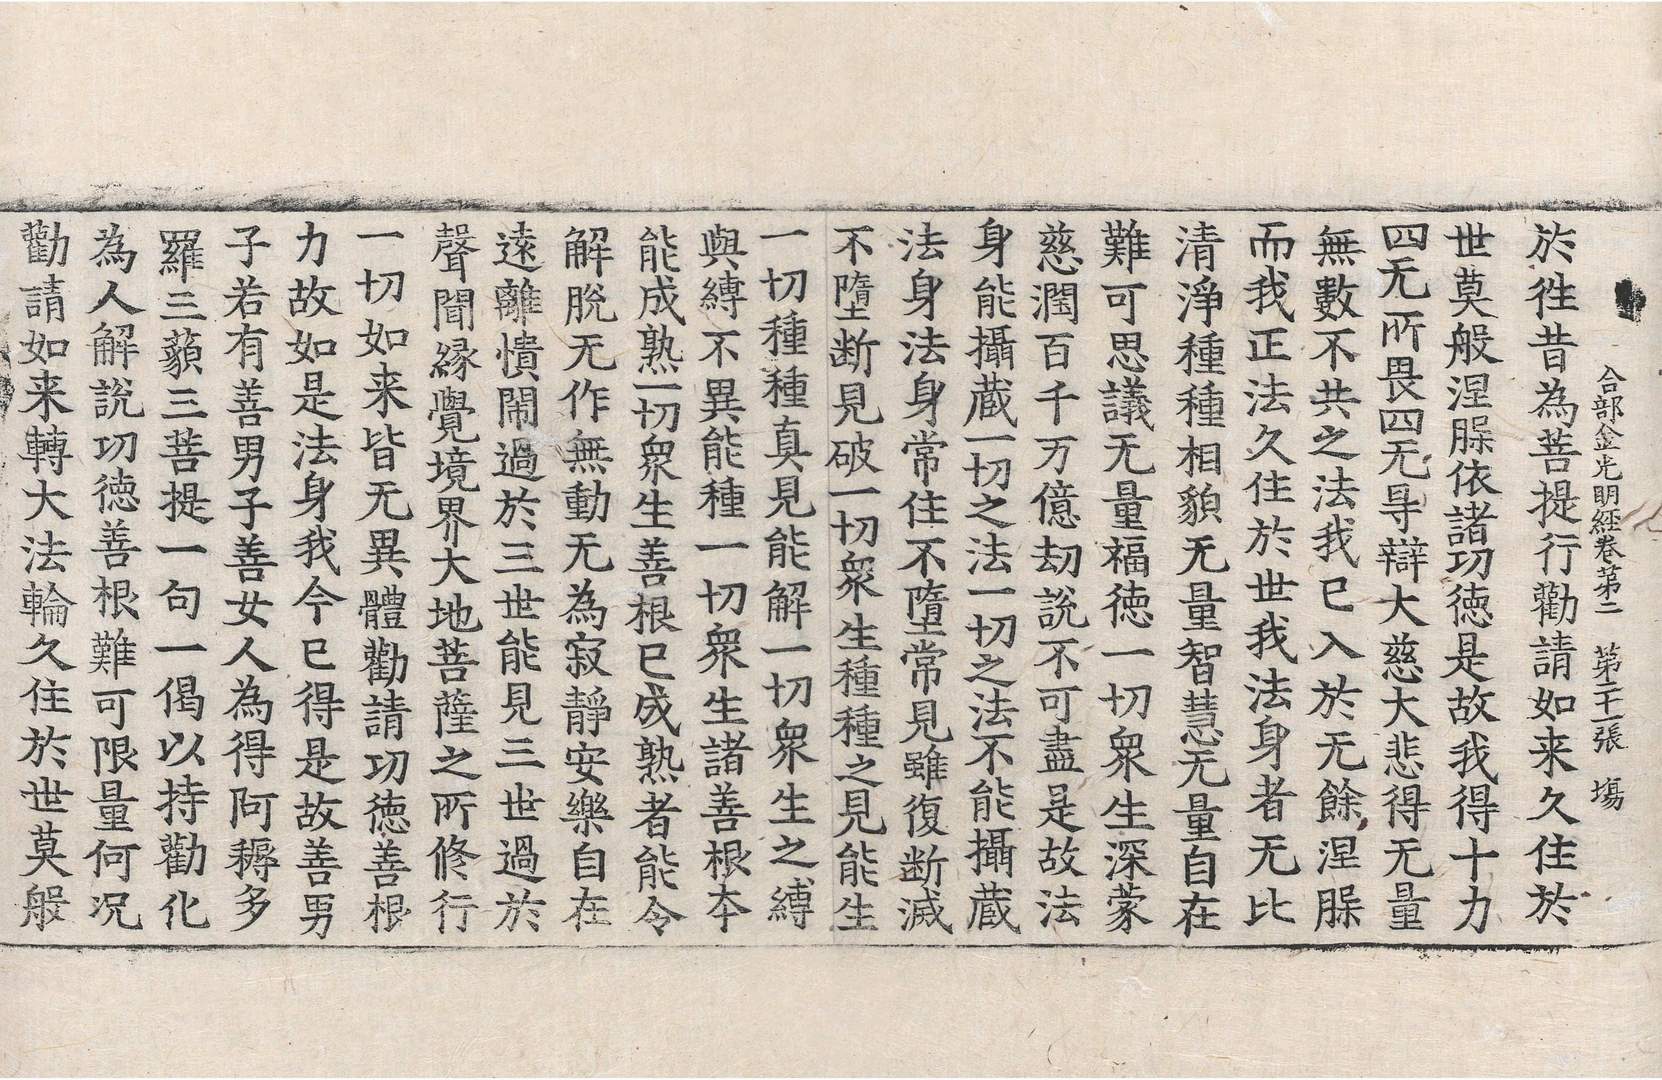 合部金光明經卷第二　第二十一張　塲
於徃昔為菩提行勸請如来久住於
世莫般涅脲依諸功徳是故我得十力
四无所畏四无㝵辯大慈大悲得无量
無數不共之法我已入於无餘涅脲
而我正法久住於世我法身者无比
清淨種種相貌无量智慧无量自在
難可思議无量福徳一切衆生深蒙
慈潤百千万億劫說不可盡是故法
身能攝蔵一切之法一切之法不能攝蔵
法身法身常住不墮常見雖復断滅
不墮断見破一切衆生種種之見能生
一切種種真見能解一切衆生之縛
與縛不異能種一切衆生諸善根本
能成熟一切衆生善根已成熟者能令
解脫无作無動无為寂靜安樂自在
遠離憒閙過於三世能見三世過於
聲聞縁覺境界大地菩薩之所修行
一切如来皆无異體勸請功徳善根
力故如是法身我今已得是故善男
子若有善男子善女人為得阿耨多
羅三藐三菩提一句一偈以持勸化
為人解說功徳善根難可限量何况
勸請如来轉大法輪久住於世莫般